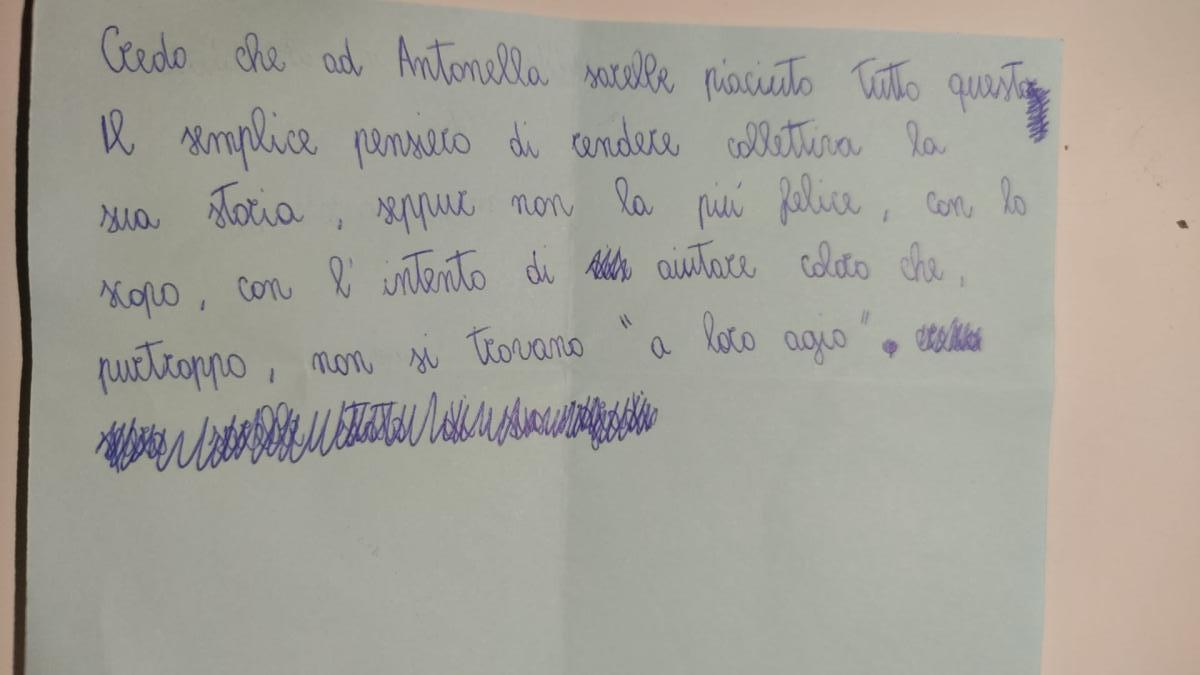 Credo che ad Antonella sarebbe piaciuto tutto questo
Il semplice pensiero di rendere collettiva la
sua storia, seppur non la più felice, con lo
scopo, con l'intento di aiutare coloro che,
purtroppo, non si trovano "a loro agio".